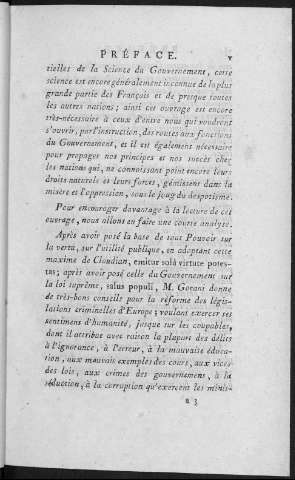 PRÉFACE. v
tielles de la Science du Gouvernement, cette
science est encore généralement inconnue de la plus
grande partie des Français et de presque toutes
les autres nations ; ainsi cet ouvrage est encore
très-nécessaire à ceux d'entre nous qui voudront
s'ouvrir, par l'instruction, des routes aux fonctions
du Gouvernement, et il est également nécessaire
pour propager nos principes et nos succès chez
les nations qui, ne connoissant point encore leurs
droits naturels et leurs forces, gémissent dans la
misère et l'oppression, sous le joug du despotisme.
Pour encourager davantage à la lecture de cet
ouvrage, nous allons en faire une courte analyse.
Après avoir posé la base de tout Pouvoir sur
la vertu, sur l'utilité publique, en adoptant cette
maxime de Claudian, emitur solâ virtute potes-
tas ; après avoir posé celle du Gouvernement sur
la loi suprême, salus populi, M. Gorani donne
de très-bons conseils pour la réforme des légis-
lations criminelles d'Europe ; voulant exercer ses
sentimens d'humanité, jusque sur les coupables,
dont il attribue avec raison la plupart des délits
à l'ignorance, à l'erreur, à la mauvaise éduca-
tion, aux mauvais exemples des cours, aux vices
des lois, aux crimes des gouvernemens, à la
séduction, à la corruption qu'exercent les minis-
a 3